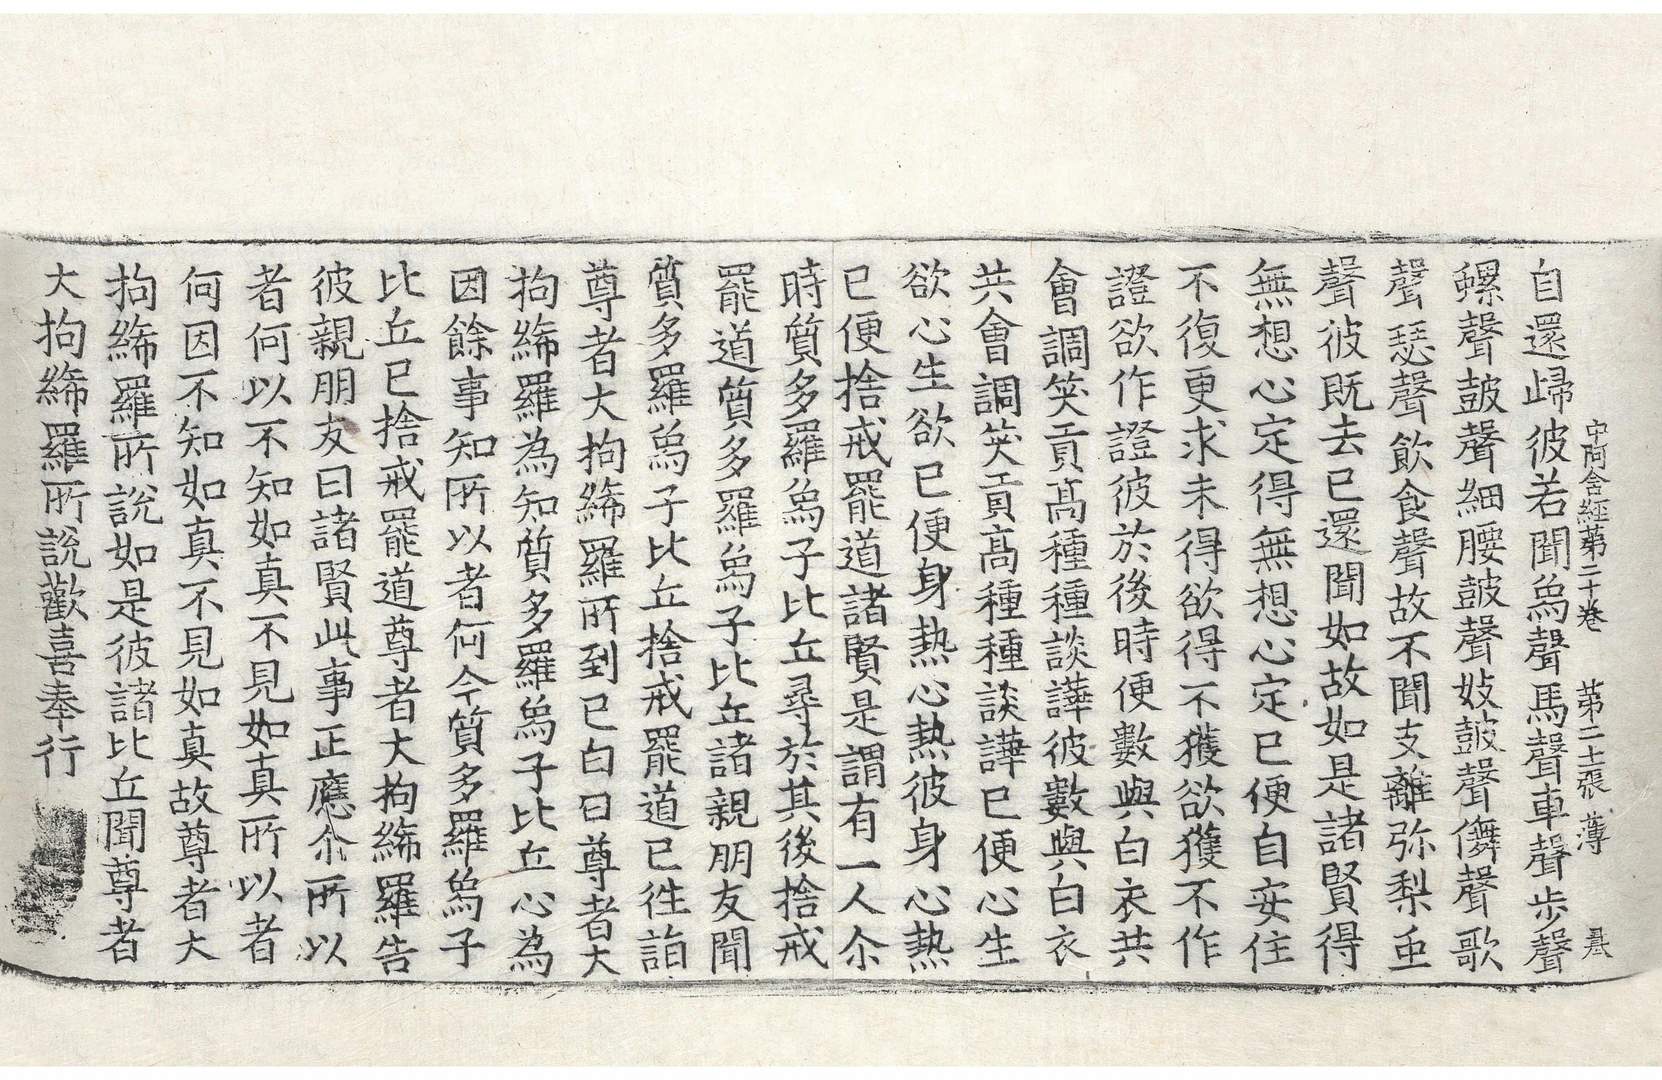 中阿含經第二十卷　第二十張　薄　墨
自還歸彼若聞象聲馬聲車聲步聲
螺聲皷聲細腰皷聲妓皷聲儛聲歌
聲瑟聲飲食聲故不聞支離弥梨垂
聲彼既去已還聞如故如是諸賢得
無想心定得無想心定已便自安住
不復更求未得欲得不獲欲獲不作
證欲作證彼於後時便數與白衣共
會調笑貢髙種種談譁彼數與白衣
共會調笑貢髙種種談譁已便心生
欲心生欲已便身熱心熱彼身心熱
已便捨戒罷道諸賢是謂有一人尒
時質多羅象子比丘尋於其後捨戒
罷道質多羅象子比丘諸親朋友聞
質多羅象子比丘捨戒罷道已徃詣
尊者大拘絺羅所到已白曰尊者大
拘絺羅為知質多羅象子比丘心為
因餘事知所以者何今質多羅象子
比丘已捨戒罷道尊者大拘絺羅告
彼親朋友曰諸賢此事正應尒所以
者何以不知如真不見如真所以者
何因不知如真不見如真故尊者大
拘絺羅所說如是彼諸比丘聞尊者
大拘絺羅所說歡喜奉行